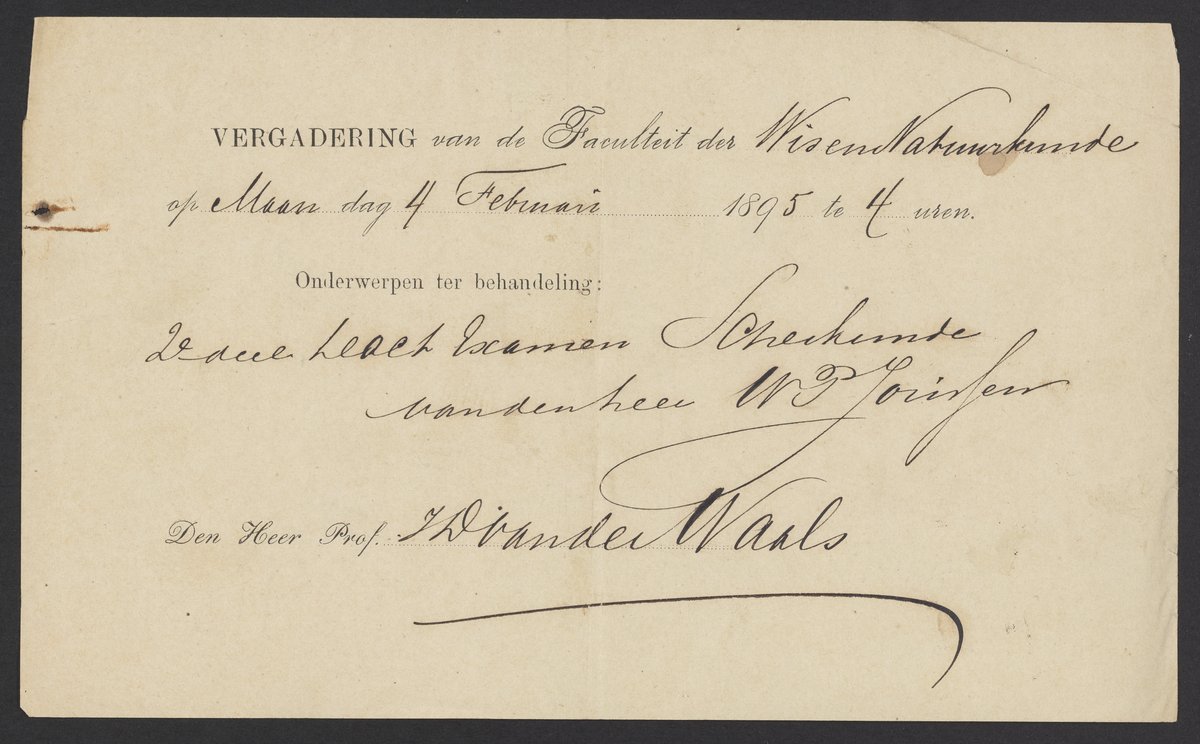 VERGADERING van de Faculteit der Wis en Natuurkunde
op Maandag 4 Februari 1895 te 4 uren.
Onderwerpen ter behandeling:
2e deel Doct Examen Scheikunde
van den heer W P Jorissen
Den Heer Prof. J D van der Waals